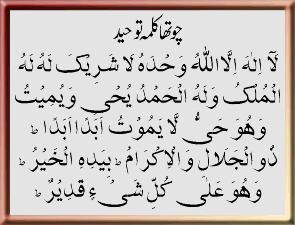 چوتھا کلمہ توحید
لَآ اِلٰهَ اِلَّا اللّٰهُ وَحْدَهٗ لَا شَرِيْكَ لَهٗ لَهُ
الْمُلْكُ وَلَهُ الْحَمْدُ يُحْىٖ وَيُمِيْتُ
وَهُوَ حَىٌّ لَّا يَمُوْتُ اَبَدًا اَبَدًا ؕ
ذُو الْجَلَالِ وَالْاِكْرَامِ ؕ بِيَدِهِ الْخَيْرُ ؕ
وَهُوَ عَلٰى كُلِّ شَىْءٍ قَدِيْرٌ ؕ